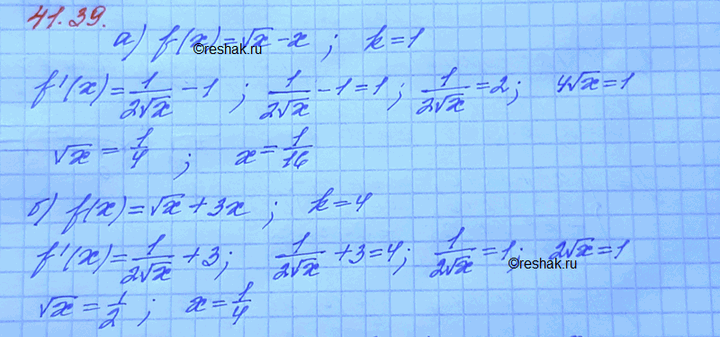 41.39.
а) f(x)=√x-x ; k=1
©reshak.ru
f'(x)=1/(2√x) -1 ; 1/(2√x) -1=1 ; 1/(2√x) =2; 4√x=1
√x = 1/4 ; x=1/16
б) f(x)=√x+3x ; k=4
f'(x)=1/(2√x) +3; 1/(2√x) +3=4; 1/(2√x) =1; 2√x=1
©reshak.ru
√x = 1/2 ; x=1/4